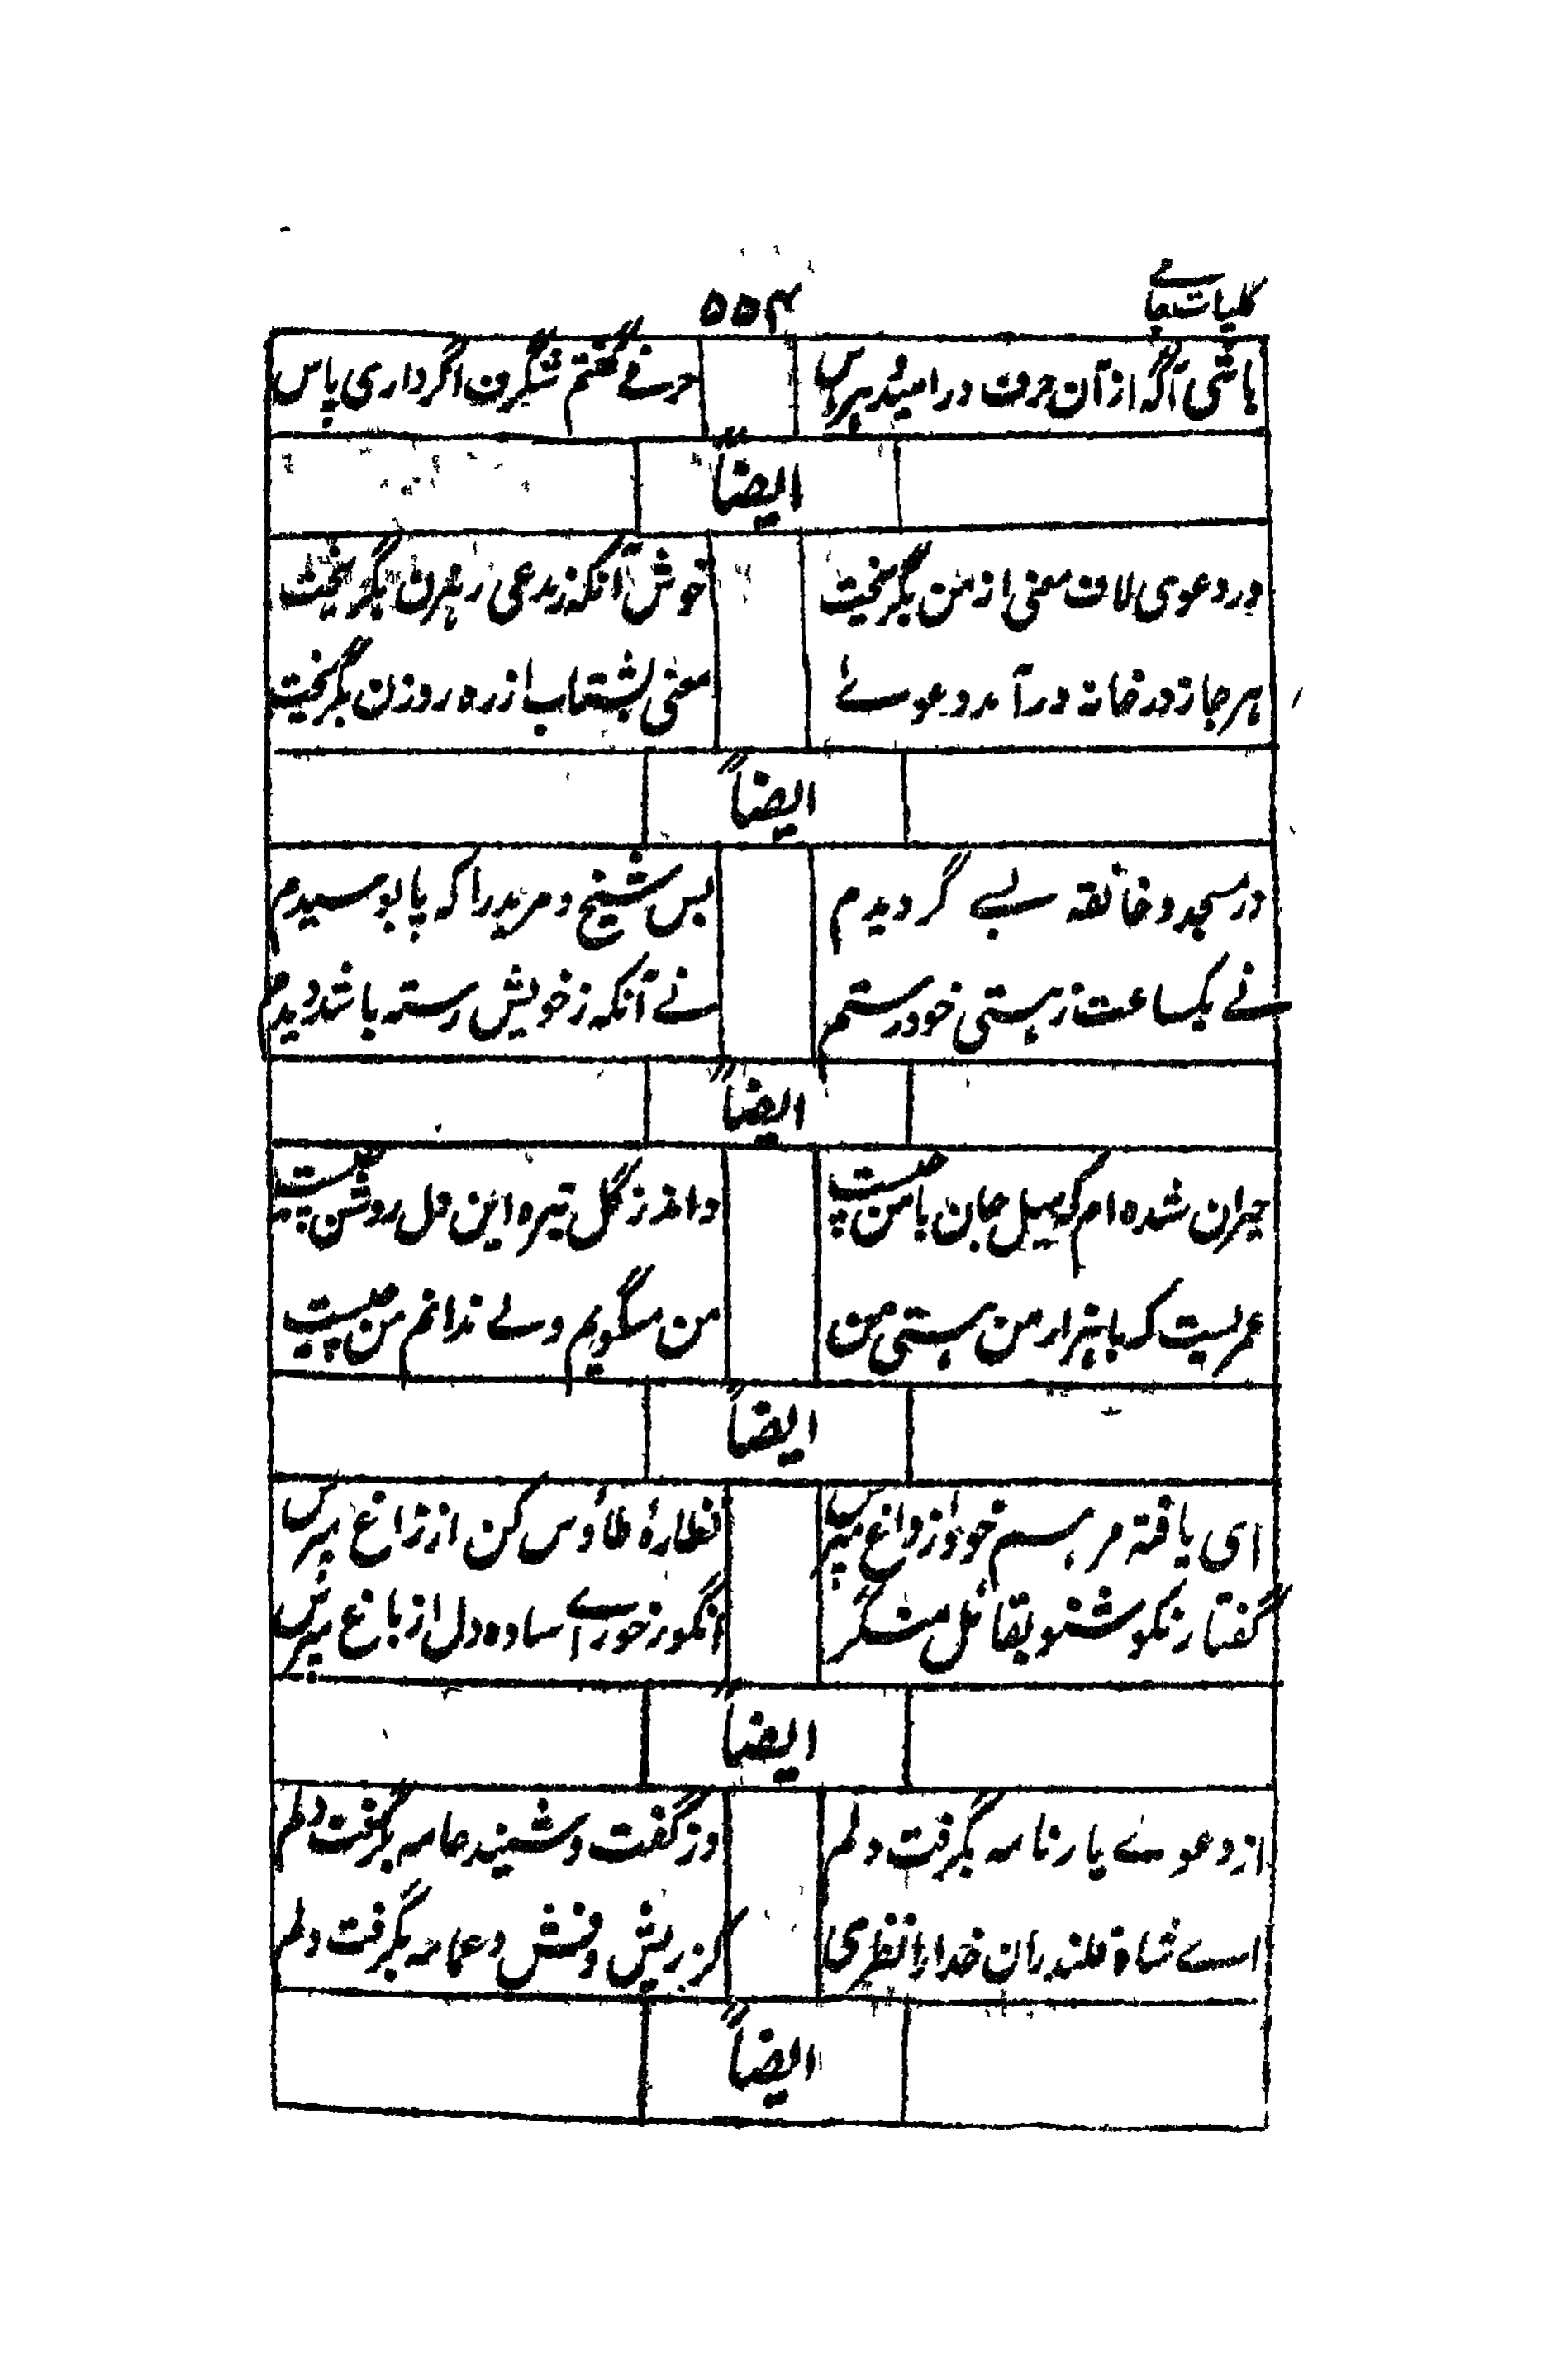 کلیات جامے
۵۵۴
باشی آگه از آن حرف در امید و هراس
حرفے گفتم شگرف اگر داری پاس
ایضاً
در دعوی لاف معنی از من بگریخت
خوش آنکه ز مدعی رهزن بگریخت
هر جا ز در خانه در آمد دعوے
معنی بشتاب از ره روزن بگریخت
ایضاً
در مسجد و خانقه بسے گردیدم
بس شیخ و مرید را که پا بوسیدم
نے یکساعت ز هستی خود رستم
نے آنکه ز خویش رسته باشد دیدم
ایضاً
حیران شده ام که میل جان با من چیست
واندر گل تیره این دل روشن چیست
عمریست که با هزار من هستی من
من میگویم ولے ندانم من چیست
ایضاً
ای یافته مرهم خود از داغ مپرس
نظارهٔ طاؤس کن از زاغ مپرس
گفتار نکو شنو بقائل منگر
انگور خور اے ساده دل از باغ مپرس
ایضاً
از دعوے بارنامه بگرفت دلم
وز گفت و شنید عامه بگرفت دلم
اے شاه قلندران خدا را نظری
کز ریش و فش و عمامه بگرفت دلم
ایضاً